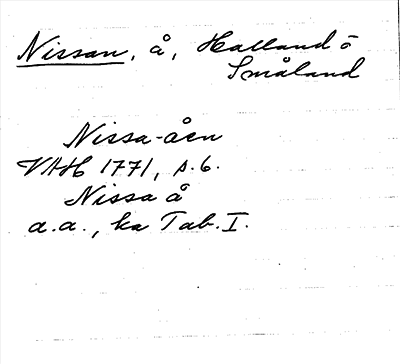 Nissan, å, Halland o
Småland
Nissa-åen
VAH 1771, s. 6.
Nissa å
a.a., ka Tab. I.